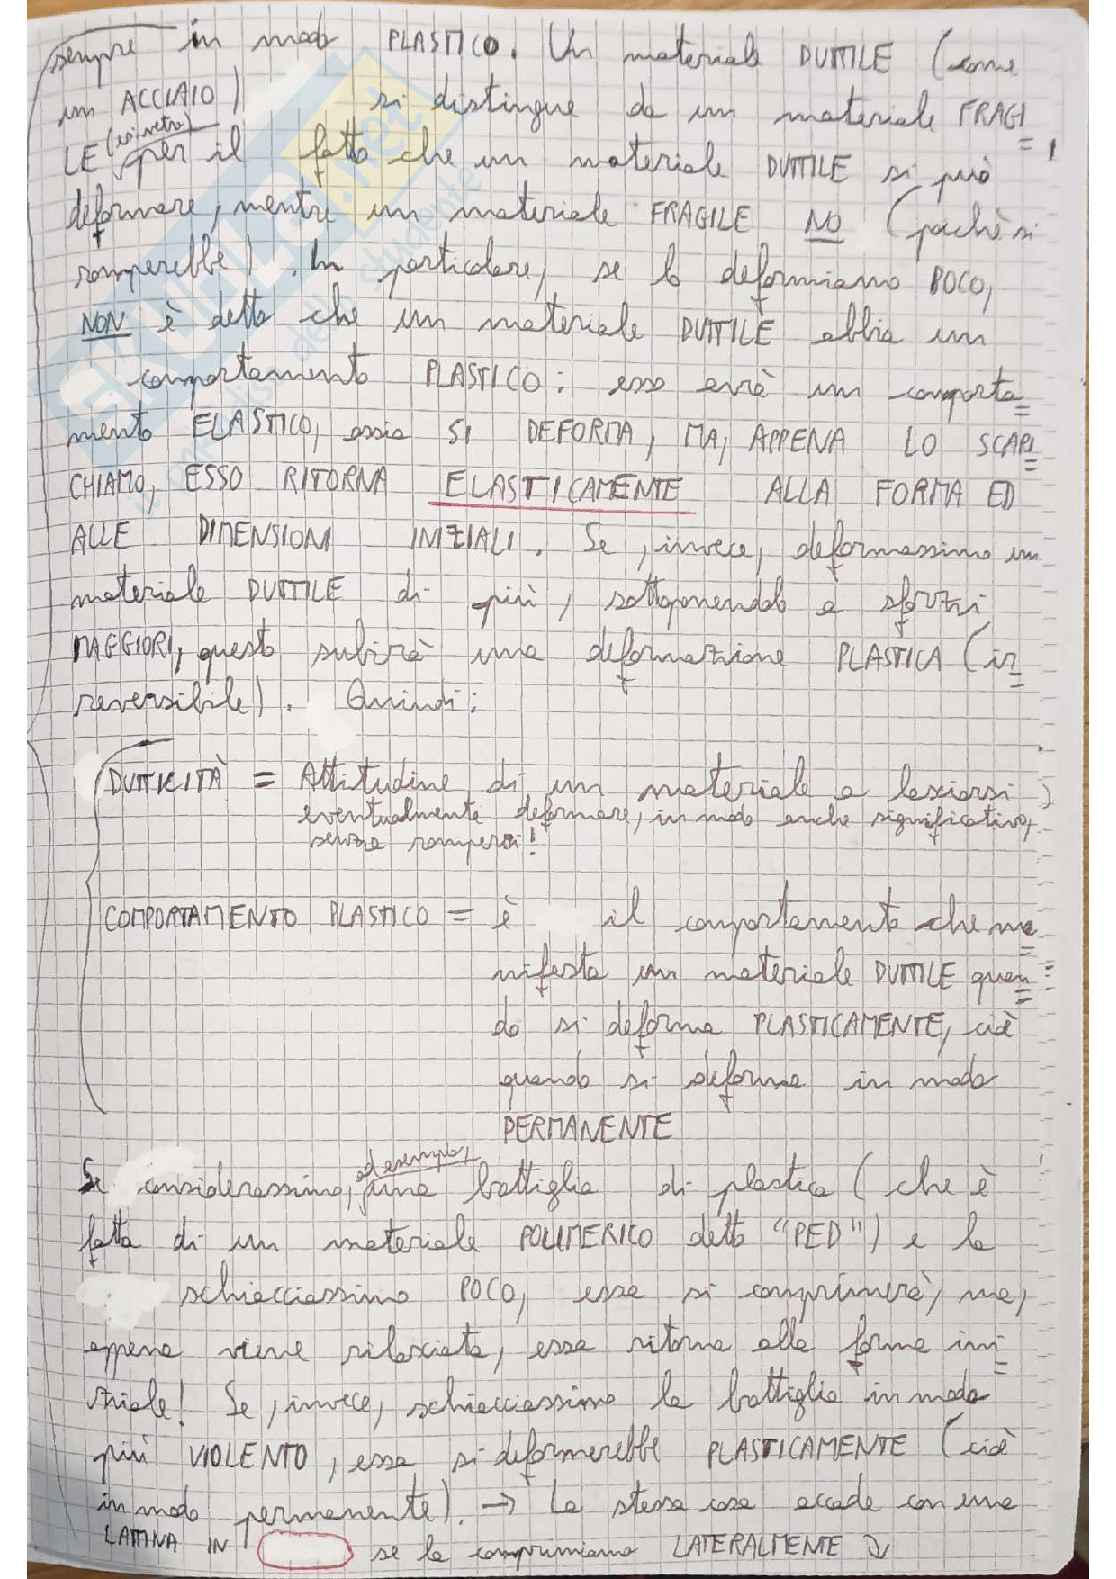 sempre in modo PLASTICO. Un materiale DUTTILE (come
un ACCIAIO) si distingue da un materiale FRAGI
LE (es: vetro) per il fatto che un materiale DUTTILE si può
deformare, mentre un materiale FRAGILE NO (poichè si
romperebbe). In particolare, se lo deformiamo POCO,
NON è detto che un materiale DUTTILE abbia un
comportamento PLASTICO: esso avrà un comporta
mento ELASTICO, ossia SI DEFORMA, MA, APPENA LO SCARI
CHIAMO, ESSO RITORNA ELASTICAMENTE ALLA FORMA ED
ALLE DIMENSIONI INIZIALI. Se, invece, deformassimo un
materiale DUTTILE di più, sottoponendolo a sforzi
MAGGIORI, questo subirà una deformazione PLASTICA (ir
reversibile). Quindi:
DUTTICITÀ = Attitudine di un materiale a lasciarsi
eventualmente deformare, in modo anche significativo,
senza rompersi!
COMPORTAMENTO PLASTICO = è il comportamento che ma
nifesta un materiale DUTTILE quan
do si deforma PLASTICAMENTE, cioè
quando si deforma in modo
PERMANENTE
Se considerassimo, ad esempio, una bottiglia di plastica (che è
fatta di un materiale POLIMERICO detto "PED") e la
schiacciassimo POCO, essa si comprimerà, ma,
appena viene rilasciata, essa ritorna alla forma ini
ziale! Se, invece, schiacciassimo la bottiglia in modo
più VIOLENTO, essa si deformerebbe PLASTICAMENTE (cioè
in modo permanente). → La stessa cosa accade con una
LAMINA IN se la comprimiamo LATERALMENTE